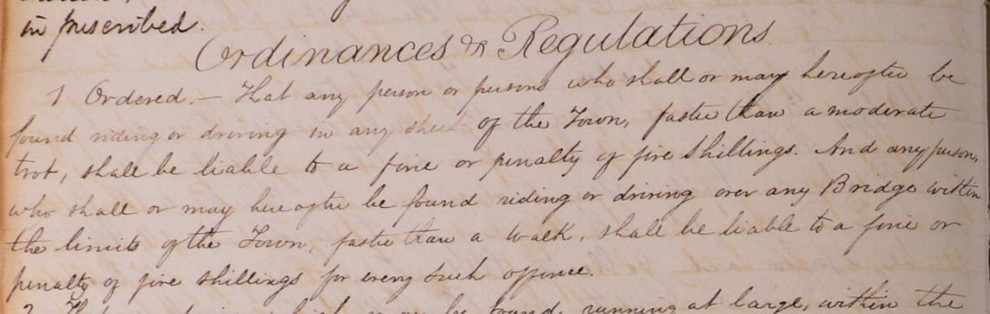 in prescribed.
Ordinances & Regulations
1 Ordered. — That any person or persons who shall or may hereafter be
found riding or driving in any street of the Town, faster than a moderate
trot, shall be liable to a fine or penalty of five Shillings. And any person,
who shall or may hereafter be found riding or driving over any Bridge within
the limits of the Town, faster than a walk, shall be liable to a fine or
penalty of five shillings for every such offence.
running at large, within the